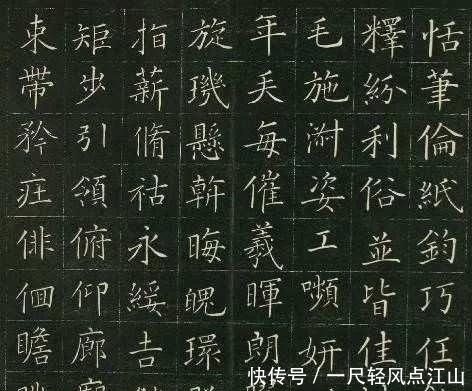 恬筆倫紙鈞巧任
釋紛利俗並皆佳
毛施淑姿工嚬妍
年矢每催羲暉朗
旋璣懸斡晦魄環
指薪脩祜永綏吉
矩步引領俯仰廊
束帶矜莊俳佪瞻
快传号/一尺轻风点江山